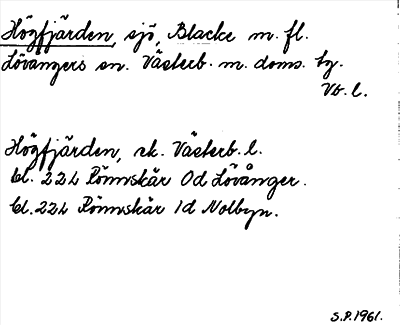 Högfjärden, sjö, Blacke m. fl.
Lövångers sn. Västerb. m. doms. tg.
Vb. l.
Högfjärden, ek. Västerb. l.
bl. 22L Rönnskär Od Lövånger.
bl. 22L Rönnskär Id Nolbyn.
S.P. 1961.